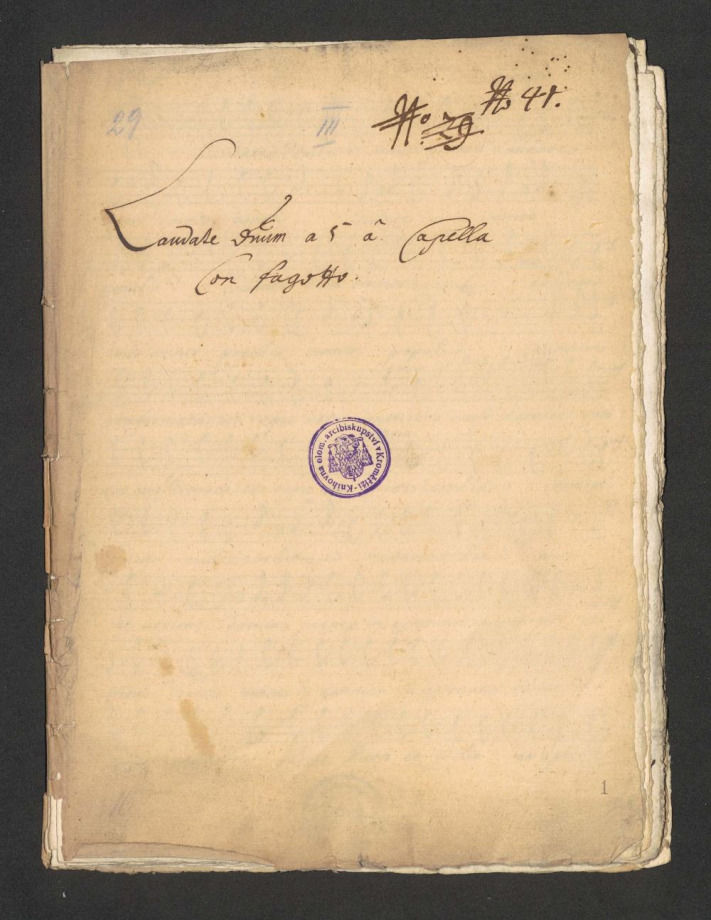 29 III No. 29 No 41.
Laudate Dnũm a 5 ã Capella
Con fagotto.
Knihovna olom. arcibiskupství v Kroměříži
1